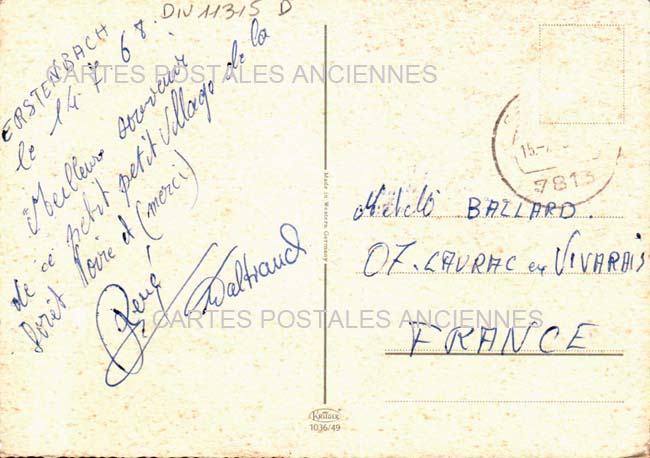 DIV 11315 D
ERSTENBACH
le 14 7 68.
Meilleurs souvenir
de ce petit petit village de la
Forêt Noire et (merci)
René Waltraud
CARTES POSTALES ANCIENNES
CARTES POSTALES ANCIENNES
Made in Western Germany
15.-7.
7813
BALLARD.
07. LAURAC en VIVARAIS
FRANCE
Krüger
1036/49